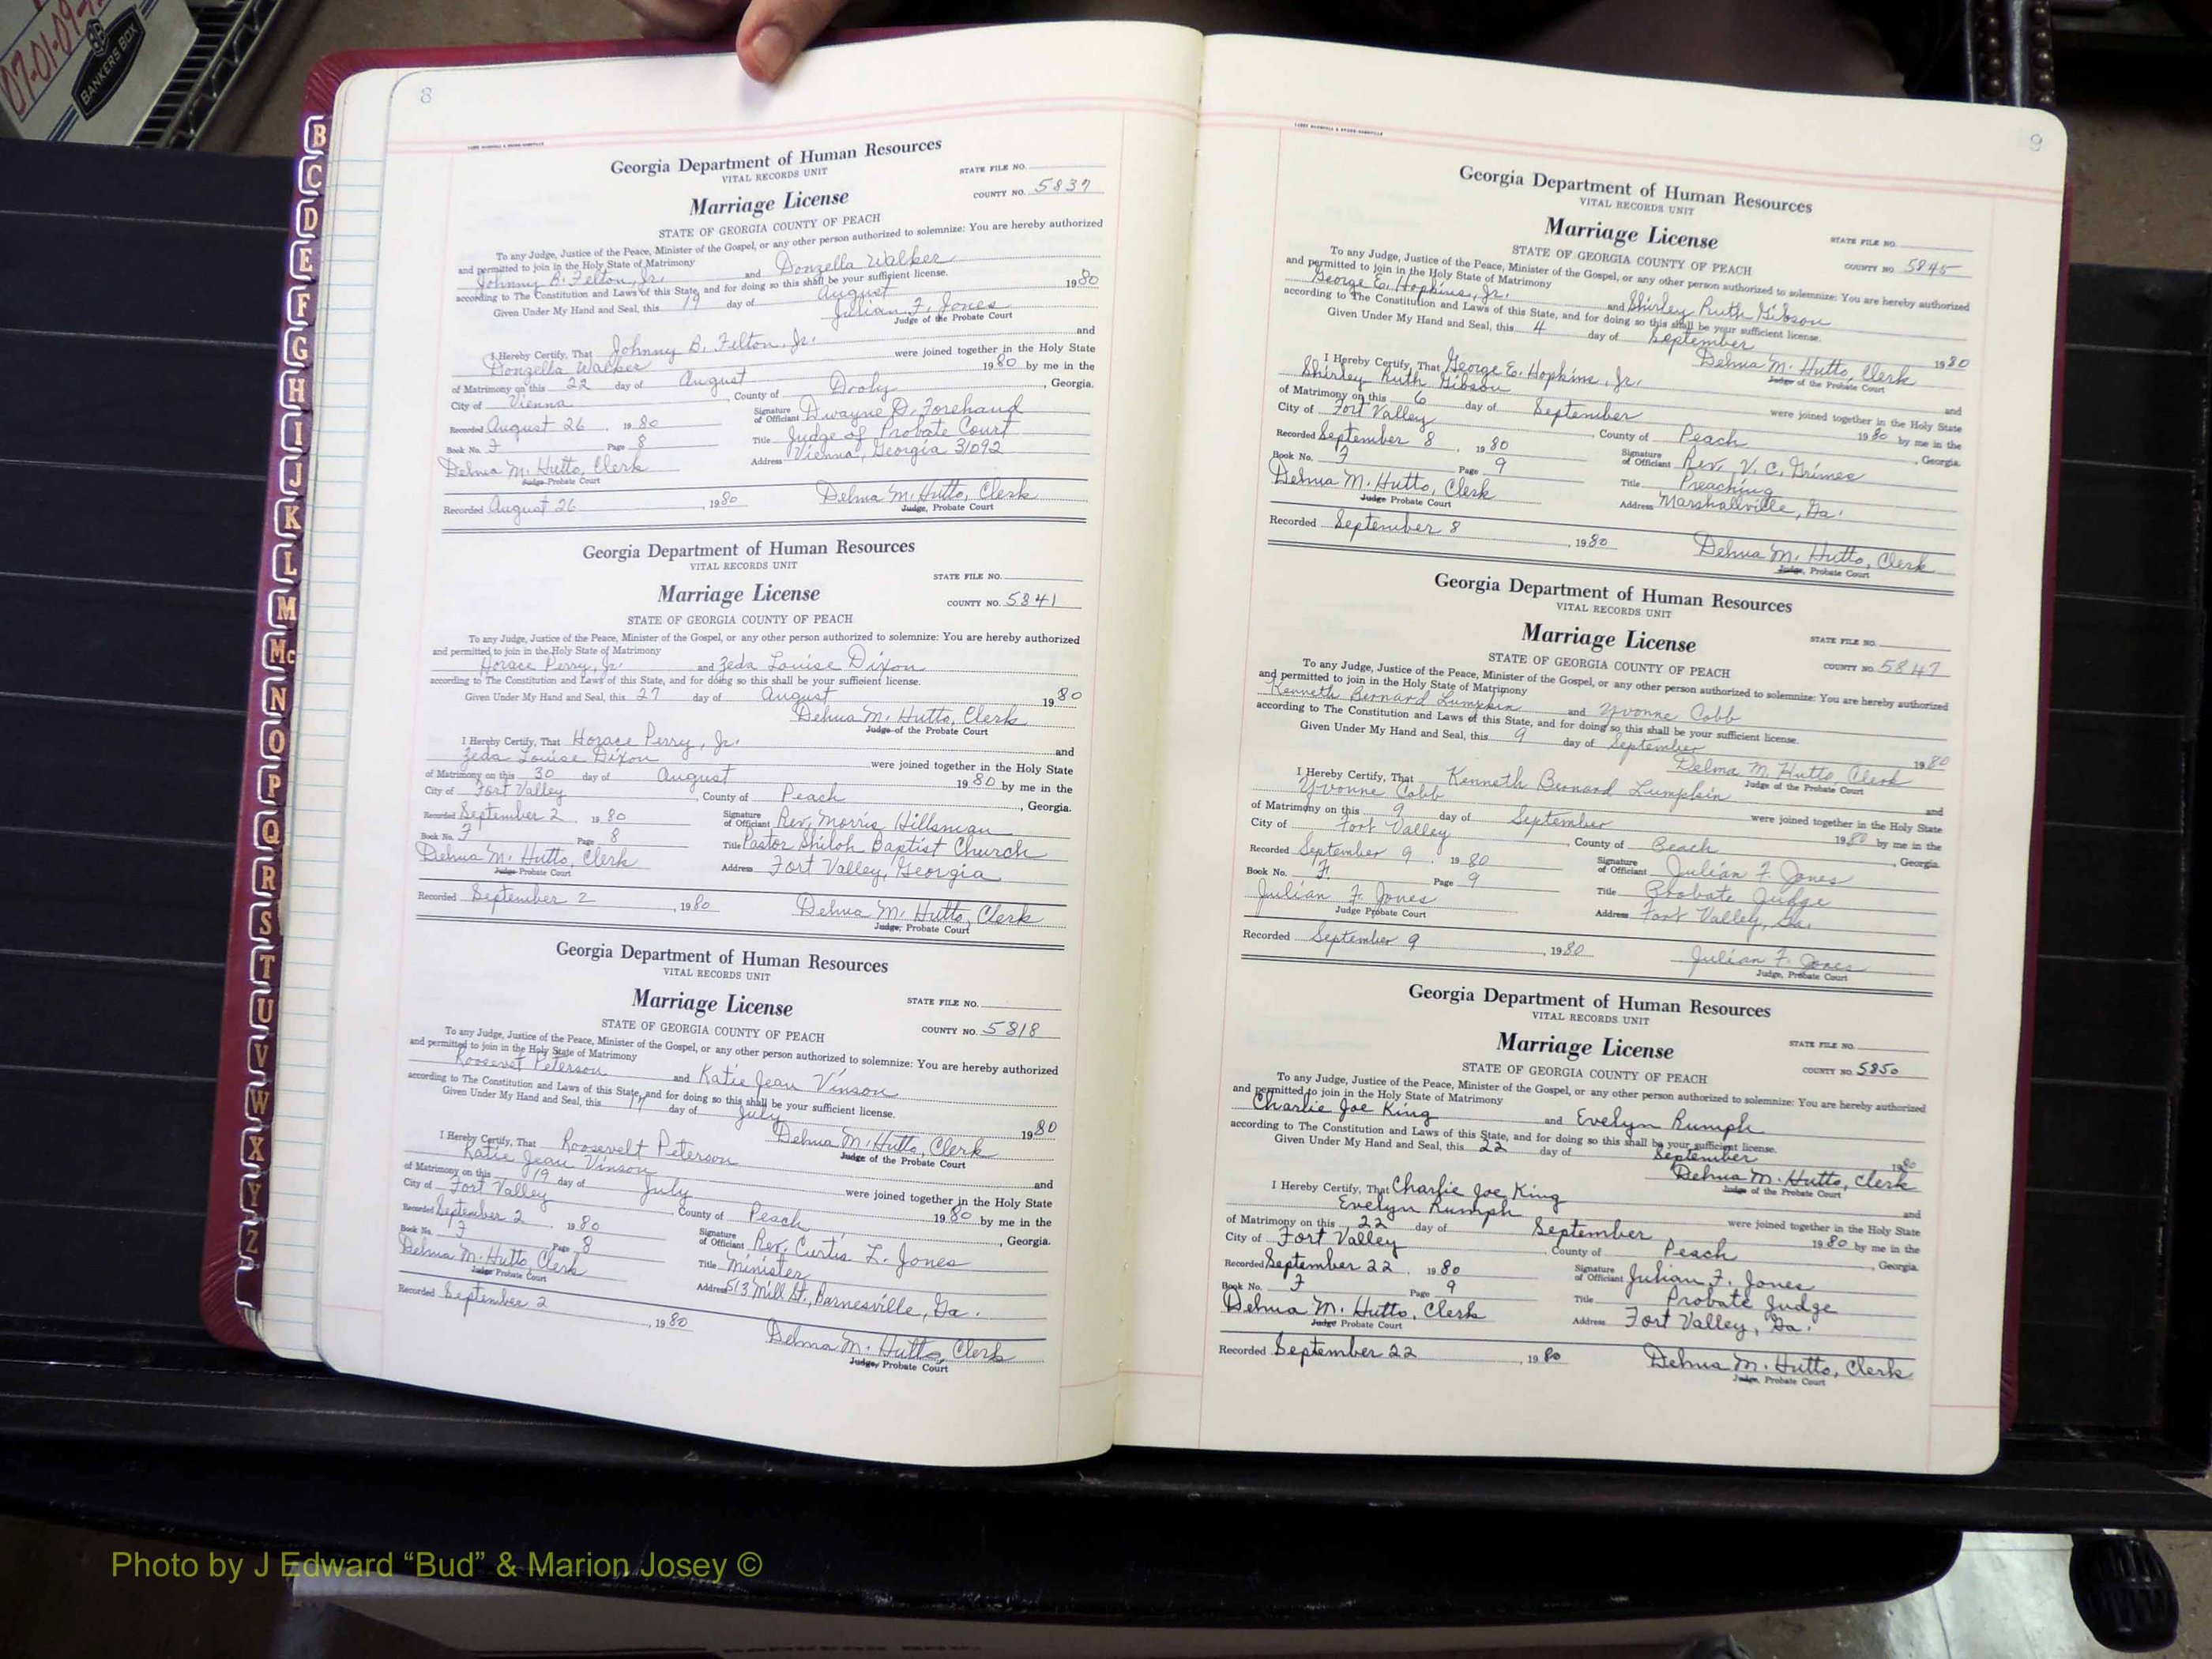 07-01-09
BANKERS BOX
B
C
D
E
F
G
H
I
J
K
L
M
Mc
N
O
P
Q
R
S
T
U
V
W
X
Y
Z
8
Georgia Department of Human Resources
VITAL RECORDS UNIT
STATE FILE NO.
Marriage License
COUNTY NO. 5837
STATE OF GEORGIA COUNTY OF PEACH
To any Judge, Justice of the Peace, Minister of the Gospel, or any other person authorized to solemnize: You are hereby authorized
and permitted to join in the Holy State of Matrimony
Johnny B. Felton, Jr. and Donzella Walker
according to The Constitution and Laws of this State, and for doing so this shall be your sufficient license.
Given Under My Hand and Seal, this 19 day of August 1980
Julian F. Jones
Judge of the Probate Court
I Hereby Certify, That Johnny B. Felton, Jr. and
Donzella Walker were joined together in the Holy State
of Matrimony on this 22 day of August 1980 by me in the
City of Vienna, County of Dooly, Georgia.
Recorded August 26, 1980 Signature of Officiant Dwayne D. Forehand
Book No. 7 Page 8 Title Judge of Probate Court
Delma M. Hutto, Clerk Address Vienna, Georgia 31092
Judge Probate Court
Recorded August 26, 1980 Delma M. Hutto, Clerk
Judge, Probate Court
Georgia Department of Human Resources
VITAL RECORDS UNIT
STATE FILE NO.
Marriage License
COUNTY NO. 5841
STATE OF GEORGIA COUNTY OF PEACH
To any Judge, Justice of the Peace, Minister of the Gospel, or any other person authorized to solemnize: You are hereby authorized
and permitted to join in the Holy State of Matrimony
Horace Perry, Jr. and Zeda Louise Dixon
according to The Constitution and Laws of this State, and for doing so this shall be your sufficient license.
Given Under My Hand and Seal, this 27 day of August 1980
Delma M. Hutto, Clerk
Judge of the Probate Court
I Hereby Certify, That Horace Perry, Jr. and
Zeda Louise Dixon were joined together in the Holy State
of Matrimony on this 30 day of August 1980 by me in the
City of Fort Valley, County of Peach, Georgia.
Recorded September 2, 1980 Signature of Officiant Rev. Morris Hillsman
Book No. 7 Page 8 Title Pastor Shiloh Baptist Church
Delma M. Hutto, Clerk Address Fort Valley, Georgia
Judge Probate Court
Recorded September 2, 1980 Delma M. Hutto, Clerk
Judge, Probate Court
Georgia Department of Human Resources
VITAL RECORDS UNIT
STATE FILE NO.
Marriage License
COUNTY NO. 5818
STATE OF GEORGIA COUNTY OF PEACH
To any Judge, Justice of the Peace, Minister of the Gospel, or any other person authorized to solemnize: You are hereby authorized
and permitted to join in the Holy State of Matrimony
Roosevet Peterson and Katie Jean Vinson
according to The Constitution and Laws of this State, and for doing so this shall be your sufficient license.
Given Under My Hand and Seal, this 17 day of July 1980
Delma M. Hutto, Clerk
Judge of the Probate Court
I Hereby Certify, That Roosevelt Peterson and
Katie Jean Vinson were joined together in the Holy State
of Matrimony on this 19 day of July 1980 by me in the
City of Fort Valley, County of Peach, Georgia.
Recorded September 2, 1980 Signature of Officiant Rev. Curtis L. Jones
Book No. 7 Page 8 Title Minister
Delma M. Hutto Clerk Address 513 Mill St., Barnesville, Ga.
Judge Probate Court
Recorded September 2, 1980 Delma M. Hutto, Clerk
Judge, Probate Court
9
Georgia Department of Human Resources
VITAL RECORDS UNIT
STATE FILE NO.
Marriage License
COUNTY NO. 5845
STATE OF GEORGIA COUNTY OF PEACH
To any Judge, Justice of the Peace, Minister of the Gospel, or any other person authorized to solemnize: You are hereby authorized
and permitted to join in the Holy State of Matrimony
George E. Hopkins, Jr. and Shirley Ruth Gibson
according to The Constitution and Laws of this State, and for doing so this shall be your sufficient license.
Given Under My Hand and Seal, this 4 day of September 1980
Delma M. Hutto, Clerk
Judge of the Probate Court
I Hereby Certify, That George E. Hopkins, Jr. and
Shirley Ruth Gibson were joined together in the Holy State
of Matrimony on this 6 day of September 1980 by me in the
City of Fort Valley, County of Peach, Georgia.
Recorded September 8, 1980 Signature of Officiant Rev. V. C. Grimes
Book No. 7 Page 9 Title Preaching
Delma M. Hutto, Clerk Address Marshallville, Ga.
Judge Probate Court
Recorded September 8, 1980 Delma M. Hutto, Clerk
Judge, Probate Court
Georgia Department of Human Resources
VITAL RECORDS UNIT
STATE FILE NO.
Marriage License
COUNTY NO. 5847
STATE OF GEORGIA COUNTY OF PEACH
To any Judge, Justice of the Peace, Minister of the Gospel, or any other person authorized to solemnize: You are hereby authorized
and permitted to join in the Holy State of Matrimony
Kenneth Bernard Lumpkin and Yvonne Cobb
according to The Constitution and Laws of this State, and for doing so this shall be your sufficient license.
Given Under My Hand and Seal, this 9 day of September 1980
Delma M. Hutto, Clerk
Judge of the Probate Court
I Hereby Certify, That Kenneth Bernard Lumpkin and
Yvonne Cobb were joined together in the Holy State
of Matrimony on this 9 day of September 1980 by me in the
City of Fort Valley, County of Peach, Georgia.
Recorded September 9, 1980 Signature of Officiant Julian F. Jones
Book No. 7 Page 9 Title Probate Judge
Julian F. Jones Address Fort Valley, Ga.
Judge Probate Court
Recorded September 9, 1980 Julian F. Jones
Judge, Probate Court
Georgia Department of Human Resources
VITAL RECORDS UNIT
STATE FILE NO.
Marriage License
COUNTY NO. 5850
STATE OF GEORGIA COUNTY OF PEACH
To any Judge, Justice of the Peace, Minister of the Gospel, or any other person authorized to solemnize: You are hereby authorized
and permitted to join in the Holy State of Matrimony
Charlie Joe King and Evelyn Rumph
according to The Constitution and Laws of this State, and for doing so this shall be your sufficient license.
Given Under My Hand and Seal, this 22 day of September 1980
Delma M. Hutto, Clerk
Judge of the Probate Court
I Hereby Certify, That Charlie Joe King and
Evelyn Rumph were joined together in the Holy State
of Matrimony on this 22 day of September 1980 by me in the
City of Fort Valley County of Peach, Georgia.
Recorded September 22, 1980 Signature of Officiant Julian F. Jones
Book No. 7 Page 9 Title Probate Judge
Delma M. Hutto, Clerk Address Fort Valley, Ga.
Judge Probate Court
Recorded September 22, 1980 Delma M. Hutto, Clerk
Judge, Probate Court
Photo by J Edward “Bud” & Marion Josey ©